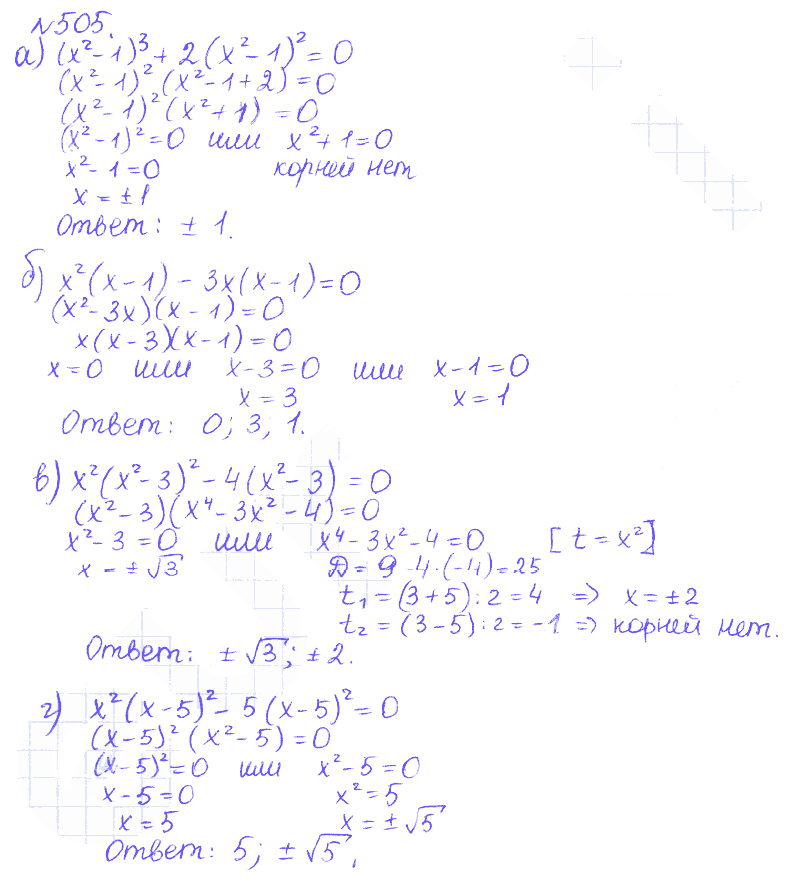 №505.
а) (x²-1)³ + 2(x²-1)² = 0
(x²-1)² (x²-1+2) = 0
(x²-1)² (x²+1) = 0
(x²-1)² = 0 или x²+1=0
x²-1=0 корней нет
x = ±1
Ответ: ± 1.
б) x²(x-1) - 3x(x-1)=0
(x²-3x)(x-1)=0
x(x-3)(x-1)=0
x=0 или x-3=0 или x-1=0
x=3 x=1
Ответ: 0; 3; 1.
в) x²(x²-3)² - 4(x²-3) = 0
(x²-3)(x⁴-3x²-4)=0
x²-3=0 или x⁴-3x²-4=0 [t=x²]
x=±√3 D=9-4·(-4)=25
t₁=(3+5):2=4 => x=±2
t₂=(3-5):2=-1 => корней нет.
Ответ: ±√3; ±2.
г) x²(x-5)²-5(x-5)²=0
(x-5)² (x²-5)=0
(x-5)²=0 или x²-5=0
x-5=0 x²=5
x=5 x=±√5
Ответ: 5; ±√5.